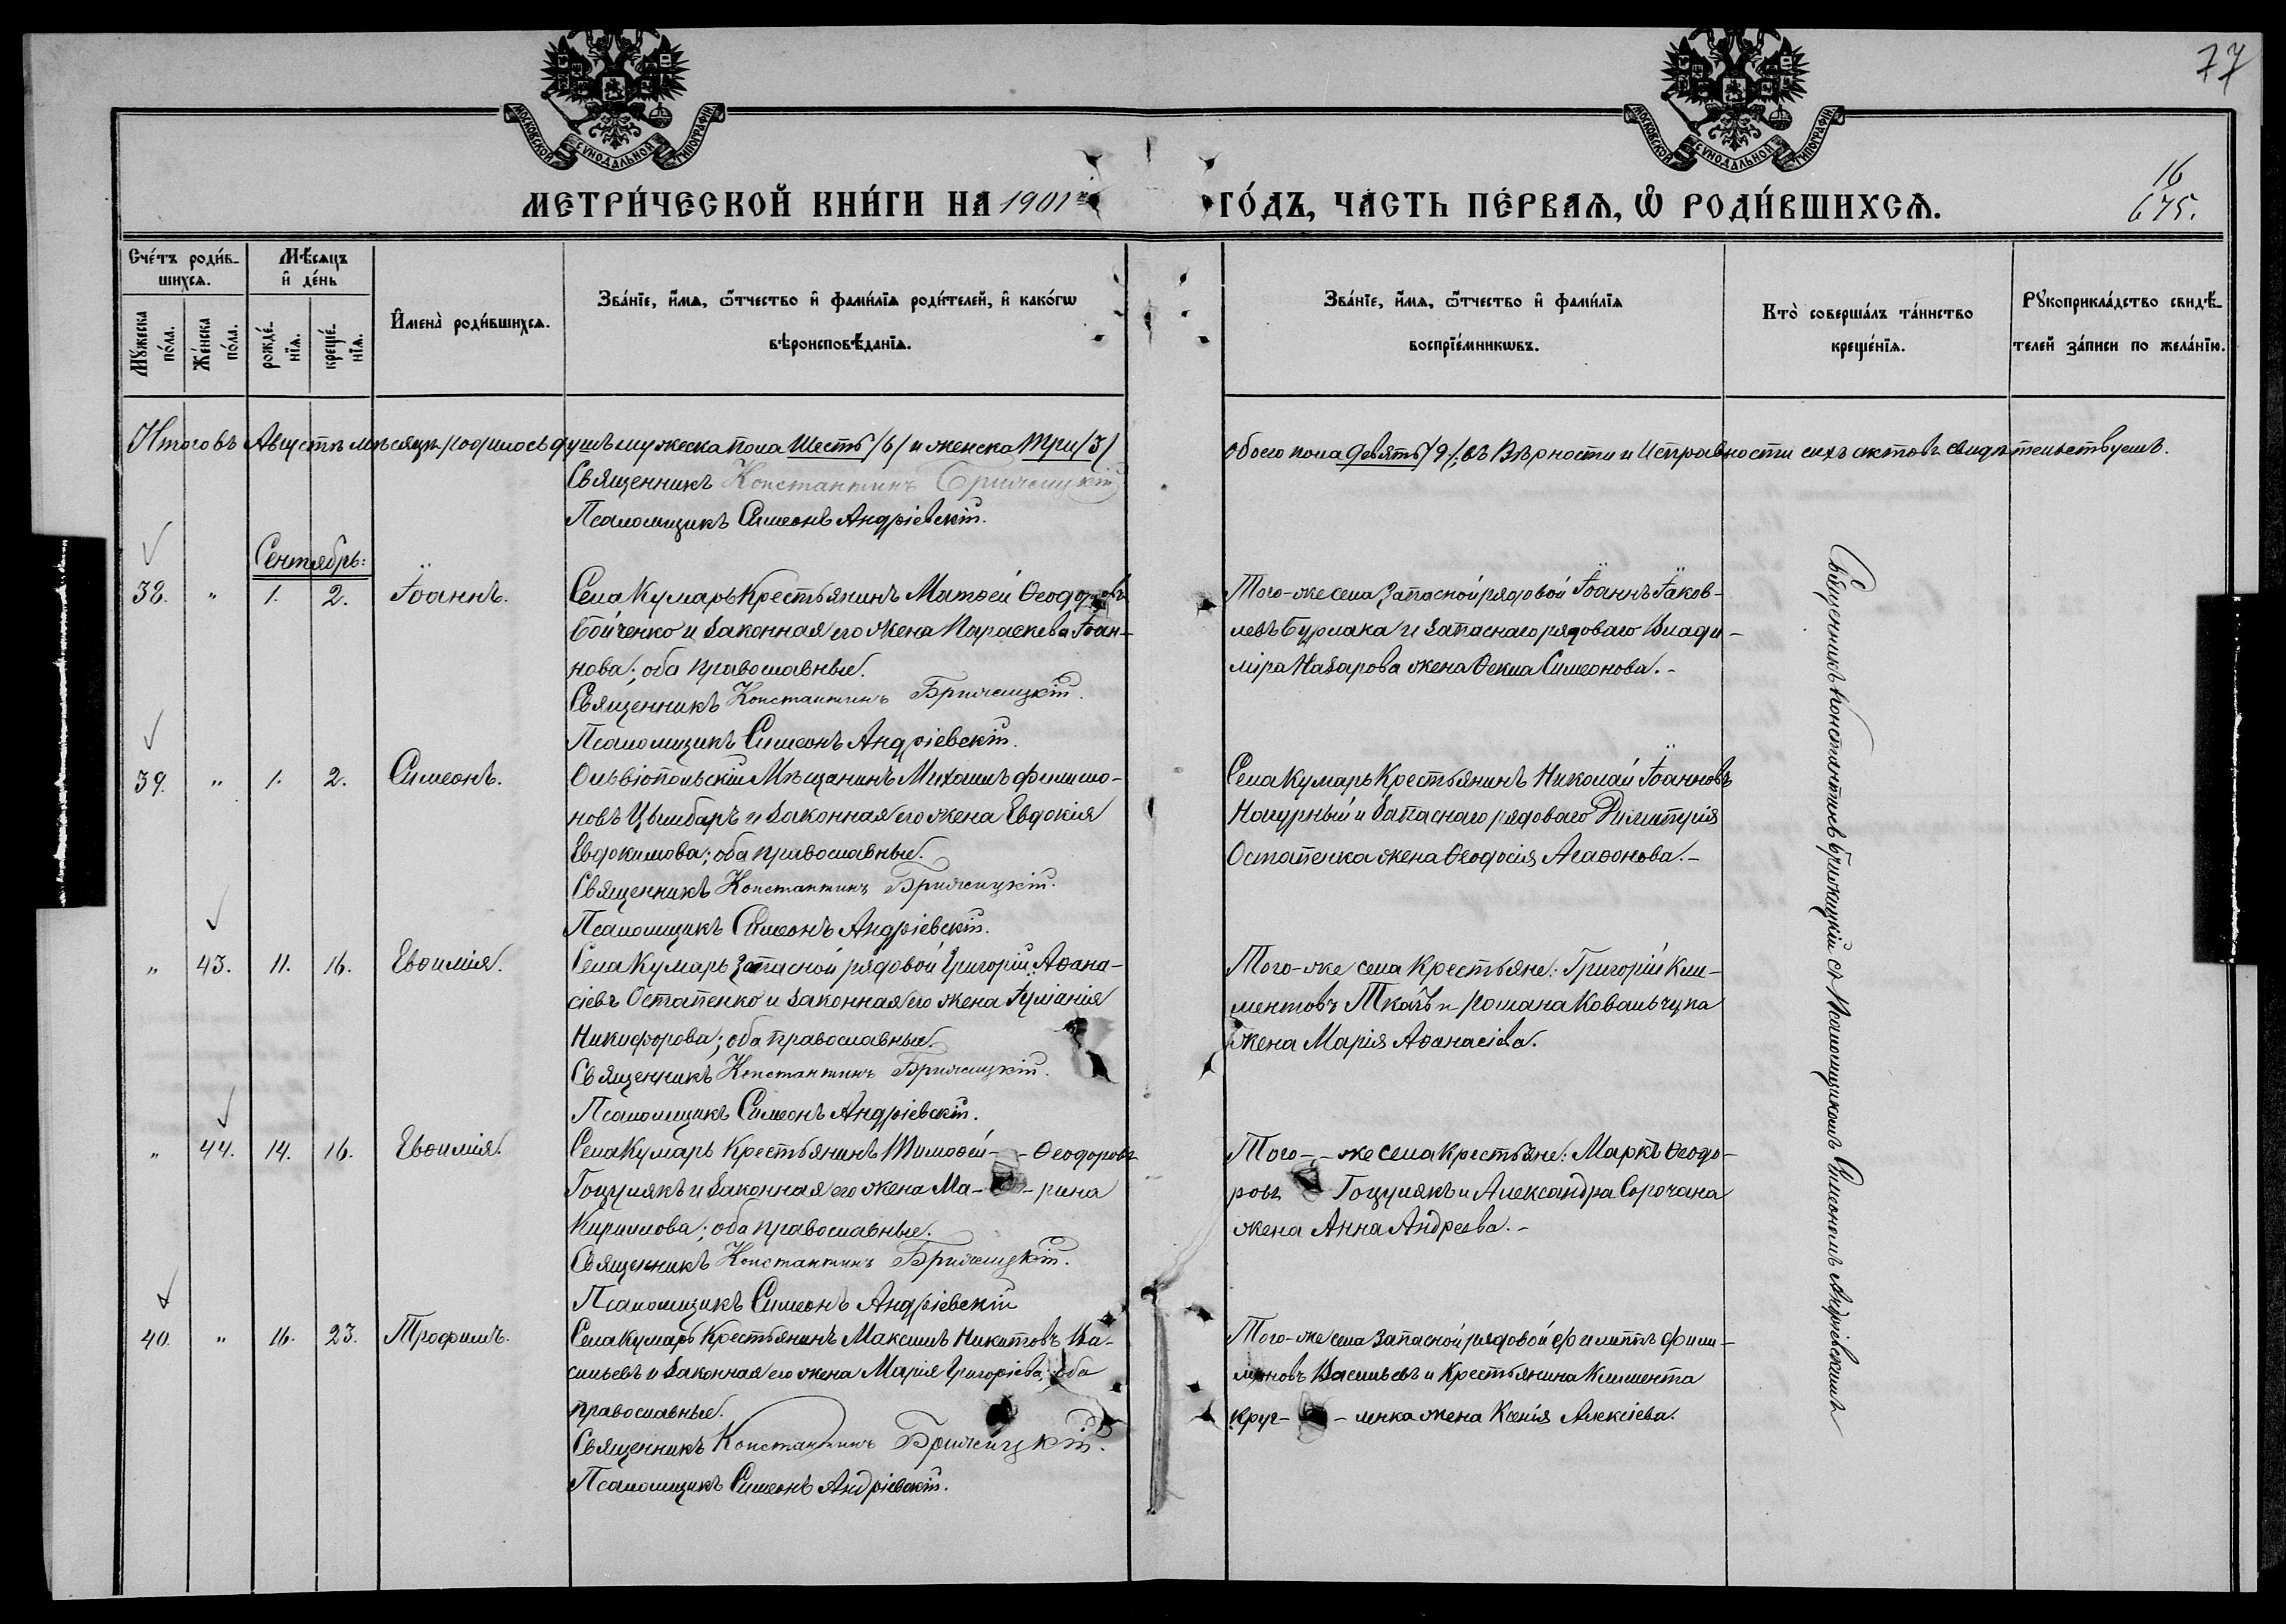 77
МОСКОВСКОЙ СѴНОДАЛЬНОЙ ТИПОГРАФІИ.
МОСКОВСКОЙ СѴНОДАЛЬНОЙ ТИПОГРАФІИ.
16
675.
МЕТРИ́ЧЕСКОЙ КНИ́ГИ НА 1901й ГО́ДЪ, ЧА́СТЬ ПЕ́РВАѦ, Ѡ РОДИ́ВШИХСѦ.
Сче́тъ роди́в-
шихсѧ.
Мѣсѧцъ
и҆ де́нь
Мꙋ́жеска
по́ла.
Же́нска
по́ла.
рожде́-
нїѧ.
креще́-
нїѧ.
И҆мена̀ роди́вшихсѧ.
Зва́нїе, и҆́мѧ, ѻ҆́тчество и҆ фами́лїѧ роди́телей, и҆ како́гѡ
вѣроисповѣ́данїѧ.
Зва́нїе, и҆́мѧ, ѻ҆́тчество и҆ фами́лїѧ
воспрїе́мникѡвъ.
Кто̀ соверша́лъ та́инство
креще́нїѧ.
Рꙋкоприкла́дство свидѣ́-
телей за́писи по жела́нїю.
Итого въ Августѣ мѣсяцѣ родилось душъ мужеска пола Шесть /6/ и женска Три /3/ обоего пола девять /9/, въ Вѣрности и Исправности сихъ актовъ свидѣтельствуемъ.
Священникъ Константинъ Брижицкій
Псаломщикъ Симеонъ Андріевскій.
Сентябрь:
38. " 1. 2. Іоаннъ. Села Кумарь Крестьянинъ Матѳей Ѳеодоровъ
Бойченко и законная его жена Параскева Іоан-
нова; оба православные.
Священникъ Константинъ Брижицкій.
Псаломщикъ Симеонъ Андріевскій.
Того-же села запасной рядовой Іоаннъ Іаков-
левъ Бурлака и запаснаго рядоваго Влади-
міра Назарова жена Ѳекла Симеонова.-
39. " 1. 2. Симеонъ. Ольвіопольскій Мѣщанинъ Михаилъ Филимо-
новъ Цымбаръ и законная его жена Евдокія
Евдокимова; оба православные.
Священникъ Константинъ Брижицкій.
Псаломщикъ Симеонъ Андріевскій.
Села Кумарь Крестьянинъ Николай Іоанновъ
Нагурный и запаснаго рядоваго Димитрія
Остапенка жена Ѳеодосія Агаѳонова.-
" 43. 11. 16. Евѳимія. Села Кумарь запасной рядовой Григорій Аѳана-
сіевъ Остапенко и законная его жена Іуліанія
Никифорова; оба православные.
Священникъ Константинъ Брижицкій.
Псаломщикъ Симеонъ Андріевскій.
Того-же села Крестьяне: Григорій Кли-
ментовъ Ткачъ и Романа Ковальчука
жена Марія Аѳанасіева.
" 44. 14. 16. Евѳимія. Села Кумарь Крестьянинъ Тимоѳей - - Ѳеодоровъ
Гоцулякъ и законная его жена Ма- - рина
Кириллова; оба православные.
Священникъ Константинъ Брижицкій.
Псаломщикъ Симеонъ Андріевскій
Того - - же села Крестьяне: Маркъ Ѳеодо-
ровъ Гоцулякъ и Александра Сорочана
жена Анна Андреева.-
40. " 16. 23. Трофимъ. Села Кумарь Крестьянинъ Максимъ Никитовъ Ва-
сильевъ и законная его жена Марія Григоріева; оба
православные.
Священникъ Константинъ Брижицкій.
Псаломщикъ Симеонъ Андріевскій.
Того-же села запасной рядовой Филиппъ Фили-
моновъ Васильевъ и Крестьянина Климента
Круг- - ленка жена Ксенія Алексіева.
Священникъ Константинъ Брижицкій съ Псаломщикомъ Симеономъ Андріевскимъ